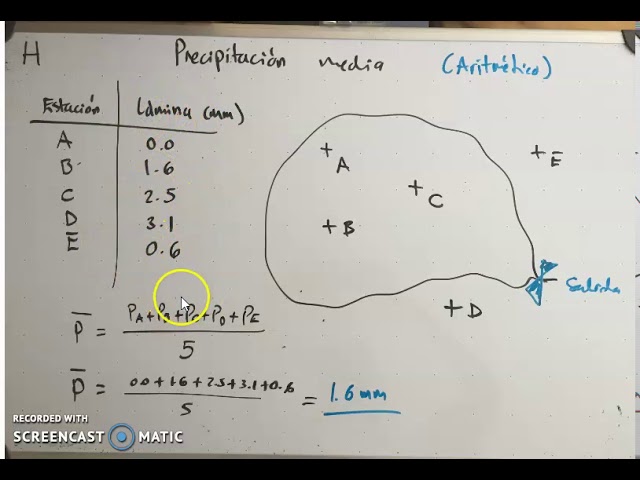 H Precipitación media (Aritmético)
Estación Lámina (mm)
A 0.0
B 1.6
C 2.5
D 3.1
E 0.6
+ A
+ B
+ C
+ E
+ D
Salida
P̅ = PA + PB + PC + PD + PE
5
P̅ = 0.0 + 1.6 + 2.5 + 3.1 + 0.6 = 1.6 mm
5
RECORDED WITH
SCREENCAST MATIC